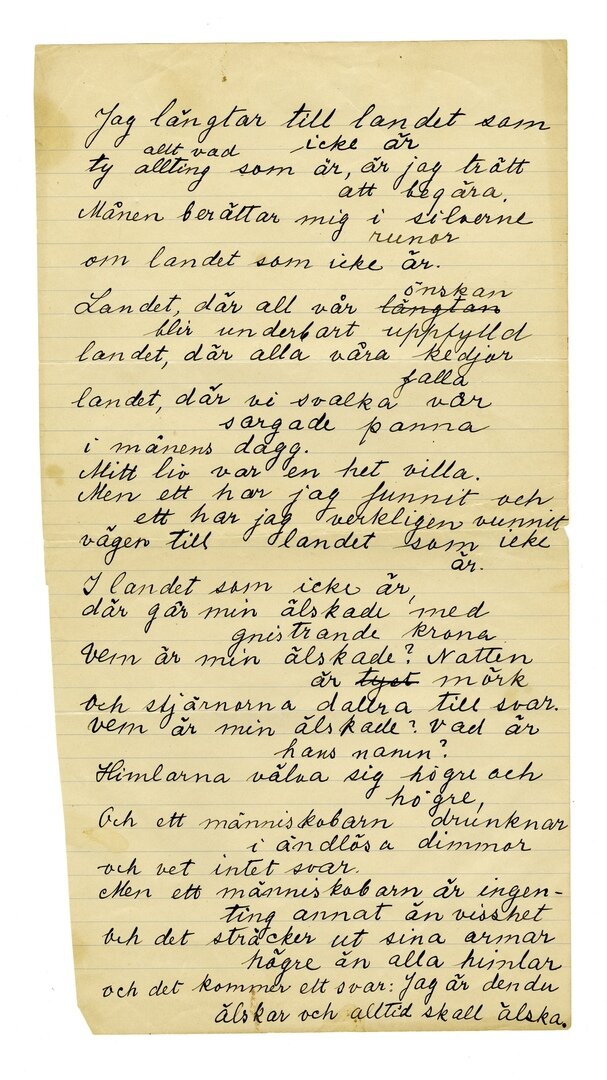 Jag längtar till landet som
icke är
allt vad
ty allting som är, är jag trött
att begära.
Månen berättar mig i silverne
runor
om landet som icke är.
önskan
Landet, där all vår längtan
blir underbart uppfylld
landet, där alla våra kedjor
falla
landet, där vi svalka vår
sargade panna
i månens dagg.
Mitt liv var en het villa.
Men ett har jag funnit och
ett har jag verkligen vunnit
vägen till landet som icke
är.
I landet som icke är,
där går min älskade med
gnistrande krona
Vem är min älskade? Natten
är tyst mörk
och stjärnorna dallra till svar.
Vem är min älskade? Vad är
hans namn?
Himlarna välva sig högre och
högre,
Och ett människobarn drunknar
i ändlösa dimmor
och vet intet svar.
Men ett människobarn är ingen-
ting annat än visshet
Och det sträcker ut sina armar
högre än alla himlar
och det kommer ett svar: Jag är den du
älskar och alltid skall älska.